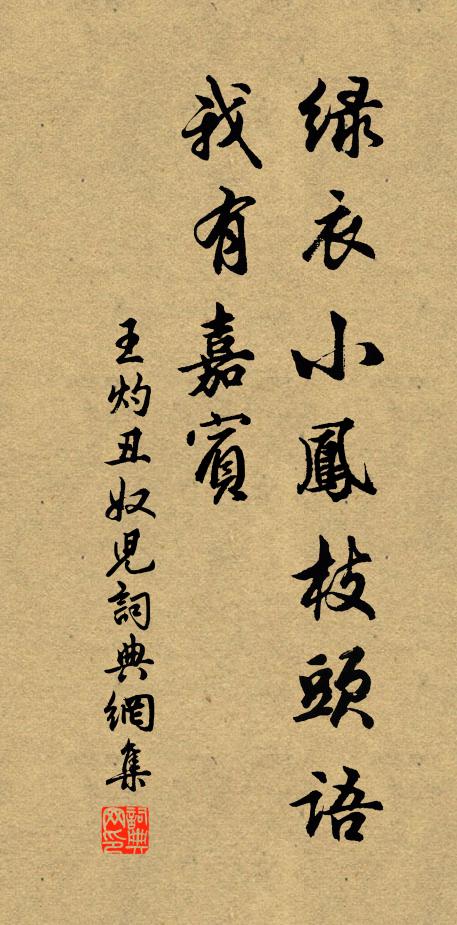 綠衣小鳳枝頭語
我有嘉賓
王灼丑奴兒詞典網集
詞典網印